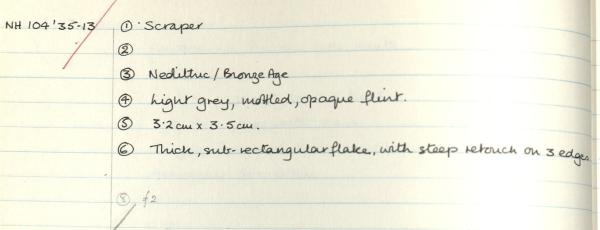 NH 104'35-13 ① Scraper
②
③ Neolithic / Bronze Age
④ Light grey, mottled, opaque flint.
⑤ 3.2cm x 3.5cm.
⑥ Thick, sub-rectangular flake, with steep retouch on 3 edges
⑧ £2